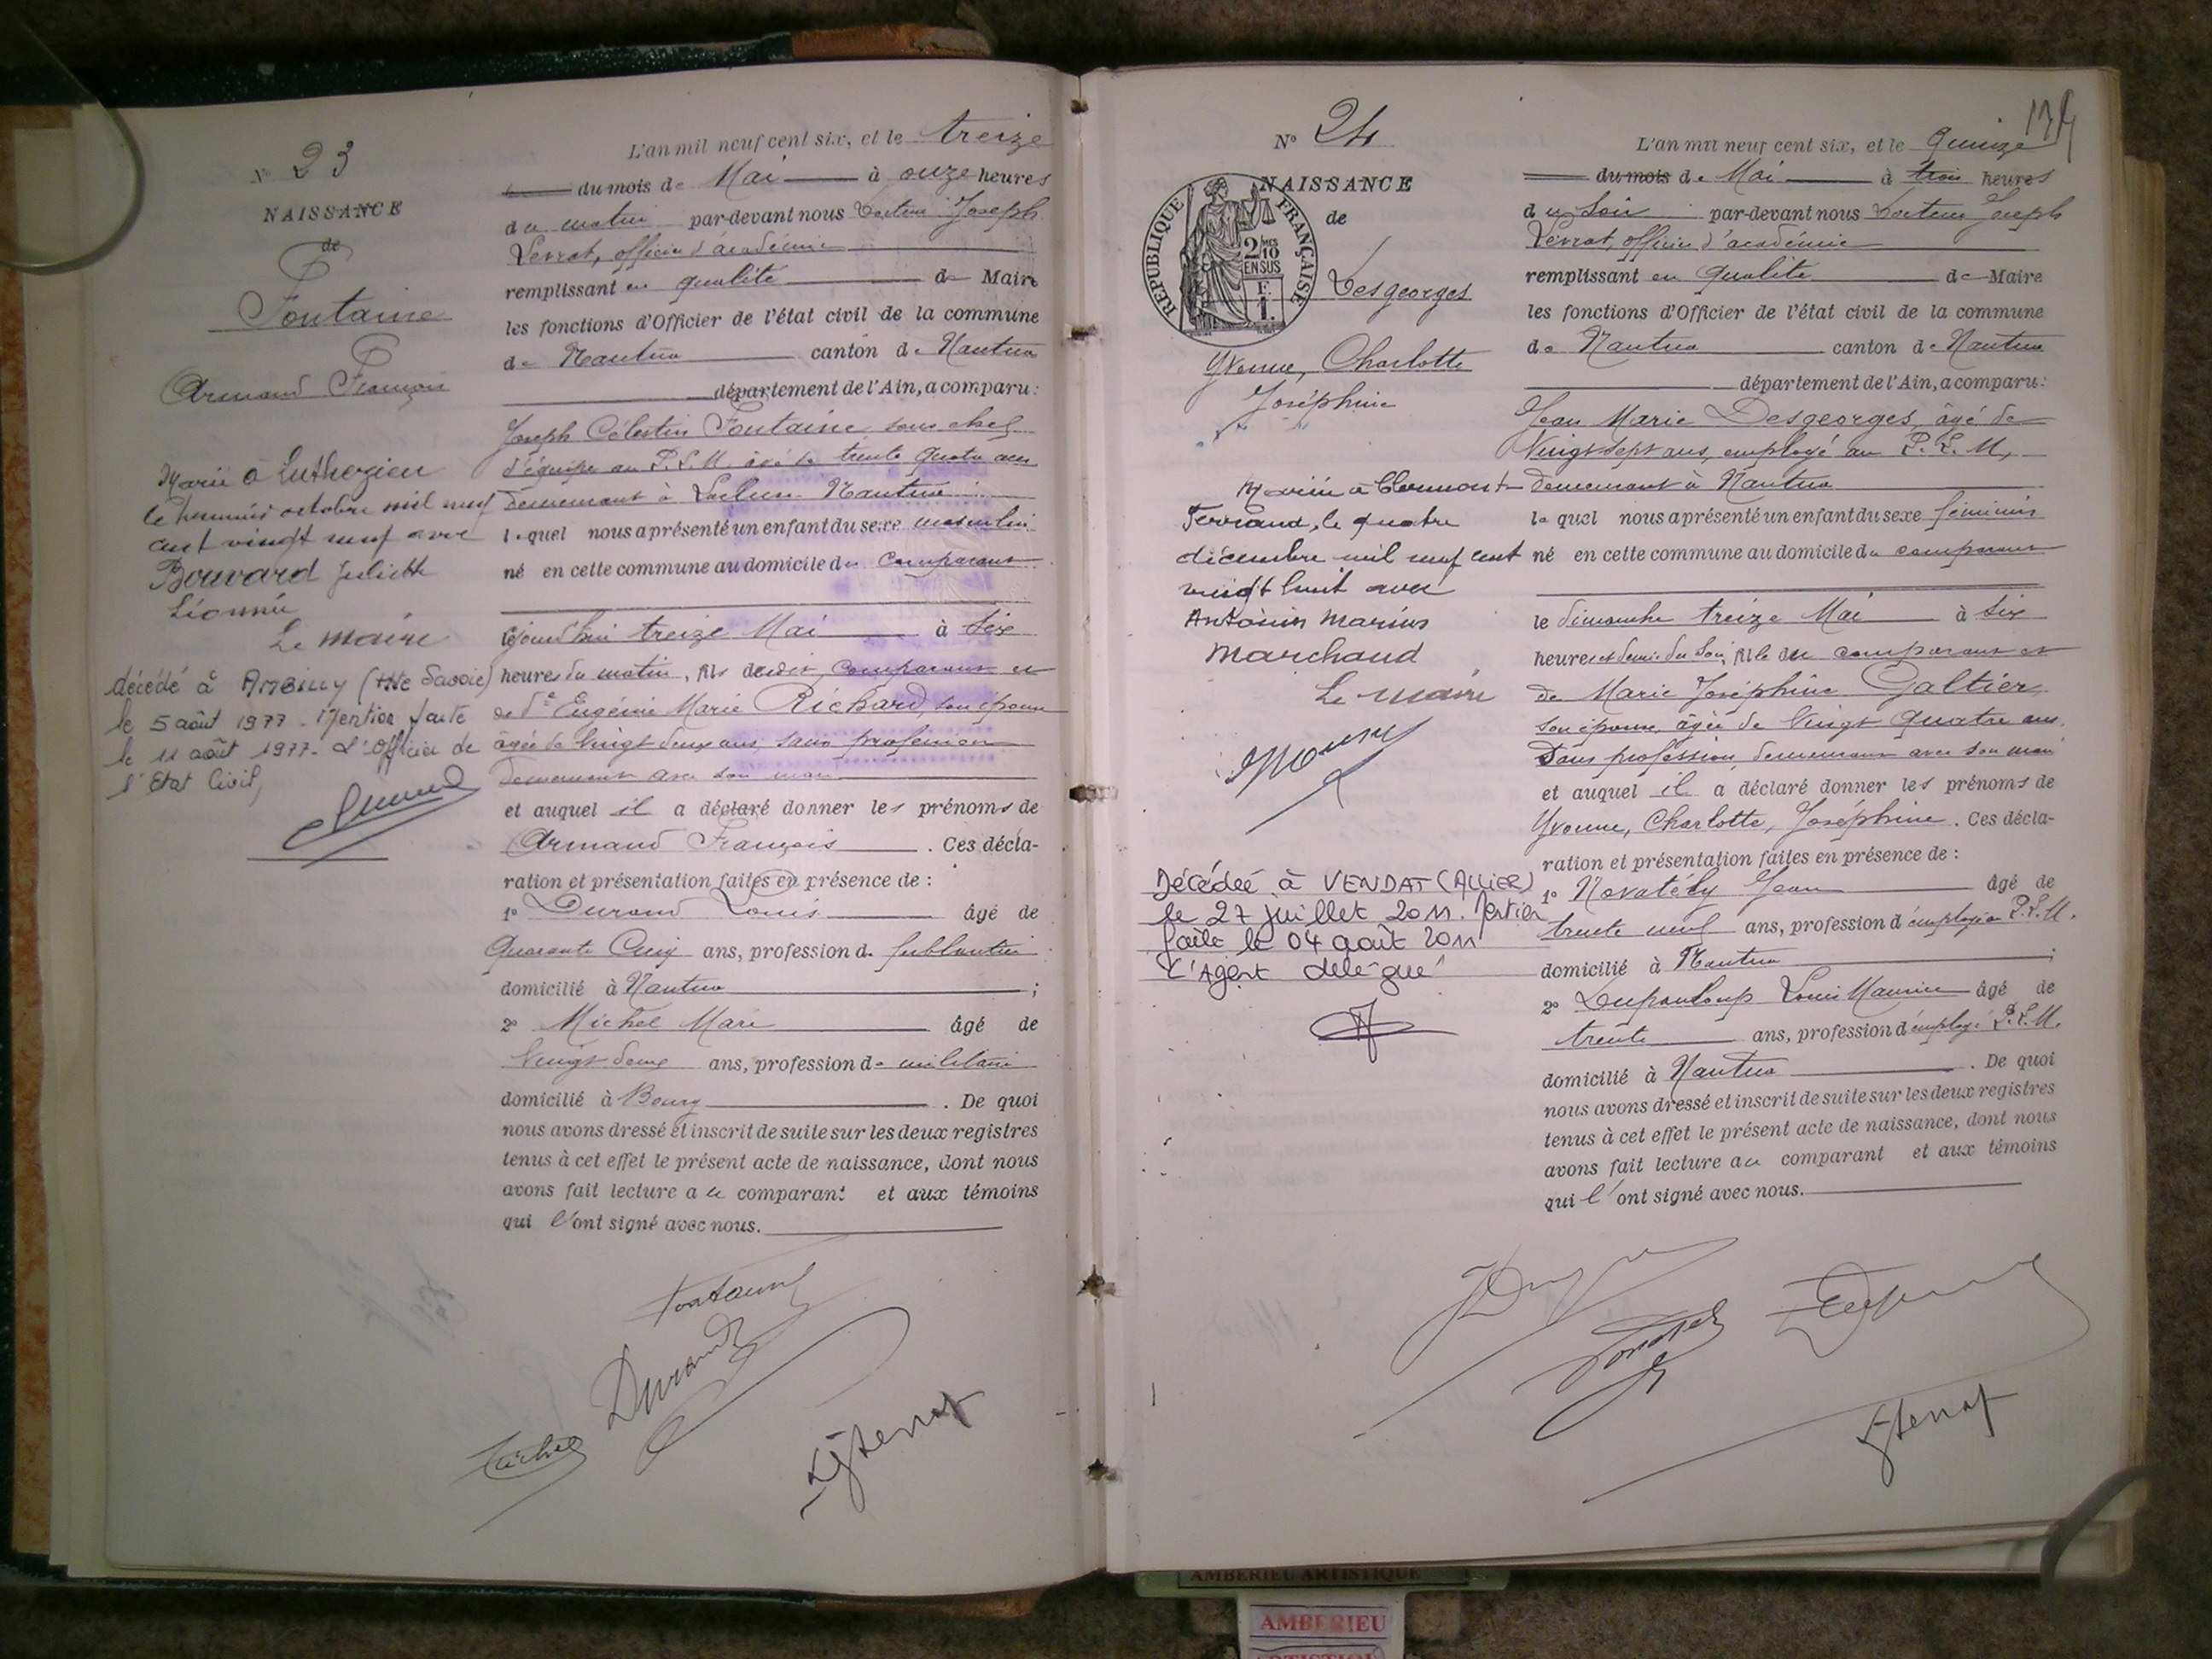 N° 23
NAISSANCE
de
Fontaine
Armand François
Marié à Luthézieu
le premier octobre mil neuf
cent vingt neuf avec
Bouvard Juliette
Léonnie
Le maire
décédé à AMBILLY (Hte Savoie)
le 5 août 1977 - Mention faite
le 11 août 1977 - L'Officier de
l'Etat Civil,
L'an mil neuf cent six, et le treize
du mois de Mai à onze heures
du matin par-devant nous Docteur Joseph
Levrat, officier d'académie
remplissant en qualité de Maire
les fonctions d'Officier de l'état civil de la commune
de Nantua canton de Nantua
département de l'Ain, a comparu :
Joseph Célestin Fontaine sous chef
d'équipe au P.L.M. âgé de trente quatre ans
demeurant à Nantua
lequel nous a présenté un enfant du sexe masculin
né en cette commune au domicile du comparant
cejourd'hui treize Mai à six
heures du matin, fils dudit comparant et
de De Eugénie Marie Richard, son épouse
âgée de vingt deux ans, sans profession
demeurant avec son mari
et auquel il a déclaré donner les prénoms de
Armand François . Ces décla-
ration et présentation faites en présence de :
1° Durand Louis âgé de
Quarante Cinq ans, profession de ferblantier
domicilié à Nantua ;
2° Michel Mari âgé de
Vingt deux ans, profession de militaire
domicilié à Bourg . De quoi
nous avons dressé et inscrit de suite sur les deux registres
tenus à cet effet le présent acte de naissance, dont nous
avons fait lecture au comparant et aux témoins
qui l'ont signé avec nous.
Fontaine
Durand
Michel
134
N° 24
NAISSANCE
de
RÉPUBLIQUE FRANÇAISE
2 MES
10
EN SUS
F.
1.
Desgeorges
Yvonne, Charlotte
Joséphine
Mariée à Clermont
Ferrand, le quatre
décembre mil neuf cent
vingt huit avec
Antonin Marius
Marchand
Le maire
Décédée à VENDAT (ALLIER)
le 27 juillet 2011. Mention
faite le 04 août 2011
L'Agent délégué
L'an mil neuf cent six, et le quinze
du mois de Mai à trois heures
du soir par-devant nous Docteur Joseph
Levrat, officier d'académie
remplissant en qualité de Maire
les fonctions d'Officier de l'état civil de la commune
de Nantua canton de Nantua
département de l'Ain, a comparu :
Jean Marie Desgeorges, âgé de
Vingt sept ans, employé au P.L.M,
demeurant à Nantua
lequel nous a présenté un enfant du sexe féminin
né en cette commune au domicile du comparant
le dimanche treize Mai à six
heures et demie du soir, fille du comparant et
de Marie Joséphine Galtier
son épouse, âgée de vingt quatre ans,
Sans profession, demeurant avec son mari
et auquel il a déclaré donner les prénoms de
Yvonne, Charlotte, Joséphine . Ces décla-
ration et présentation faites en présence de :
1° Jean âgé de
trente neuf ans, profession d'employé au P.L.M.
domicilié à Nantua ;
2° Dupanloup Louis Maurice âgé de
trente ans, profession d'employé P.L.M.
domicilié à Nantua . De quoi
nous avons dressé et inscrit de suite sur les deux registres
tenus à cet effet le présent acte de naissance, dont nous
avons fait lecture au comparant et aux témoins
qui l'ont signé avec nous.
AMBERIEU ARTISTIQUE
AMBERIEU
ARTISTIQUE